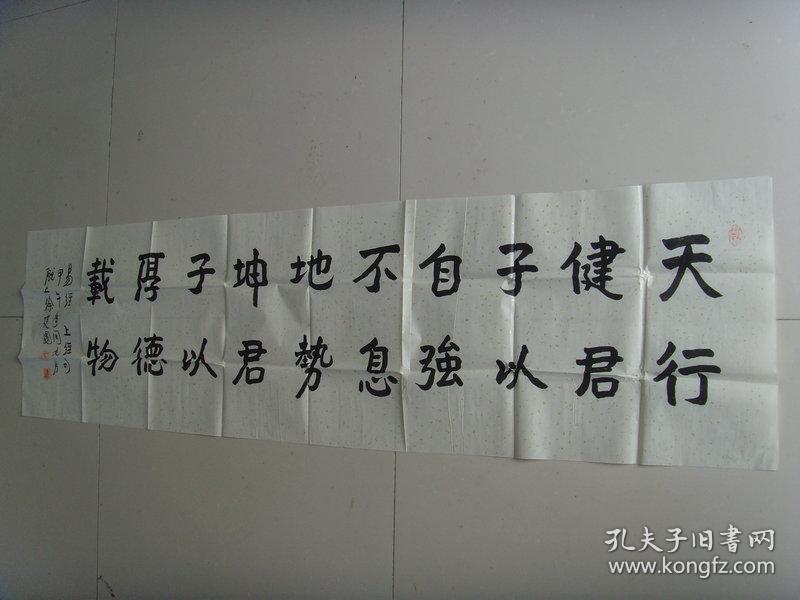 天行
健君
子以
自強
不息
地勢
坤君
子以
厚德
載物
易经 上经句
甲午
孔夫子旧書网
www.kongfz.com